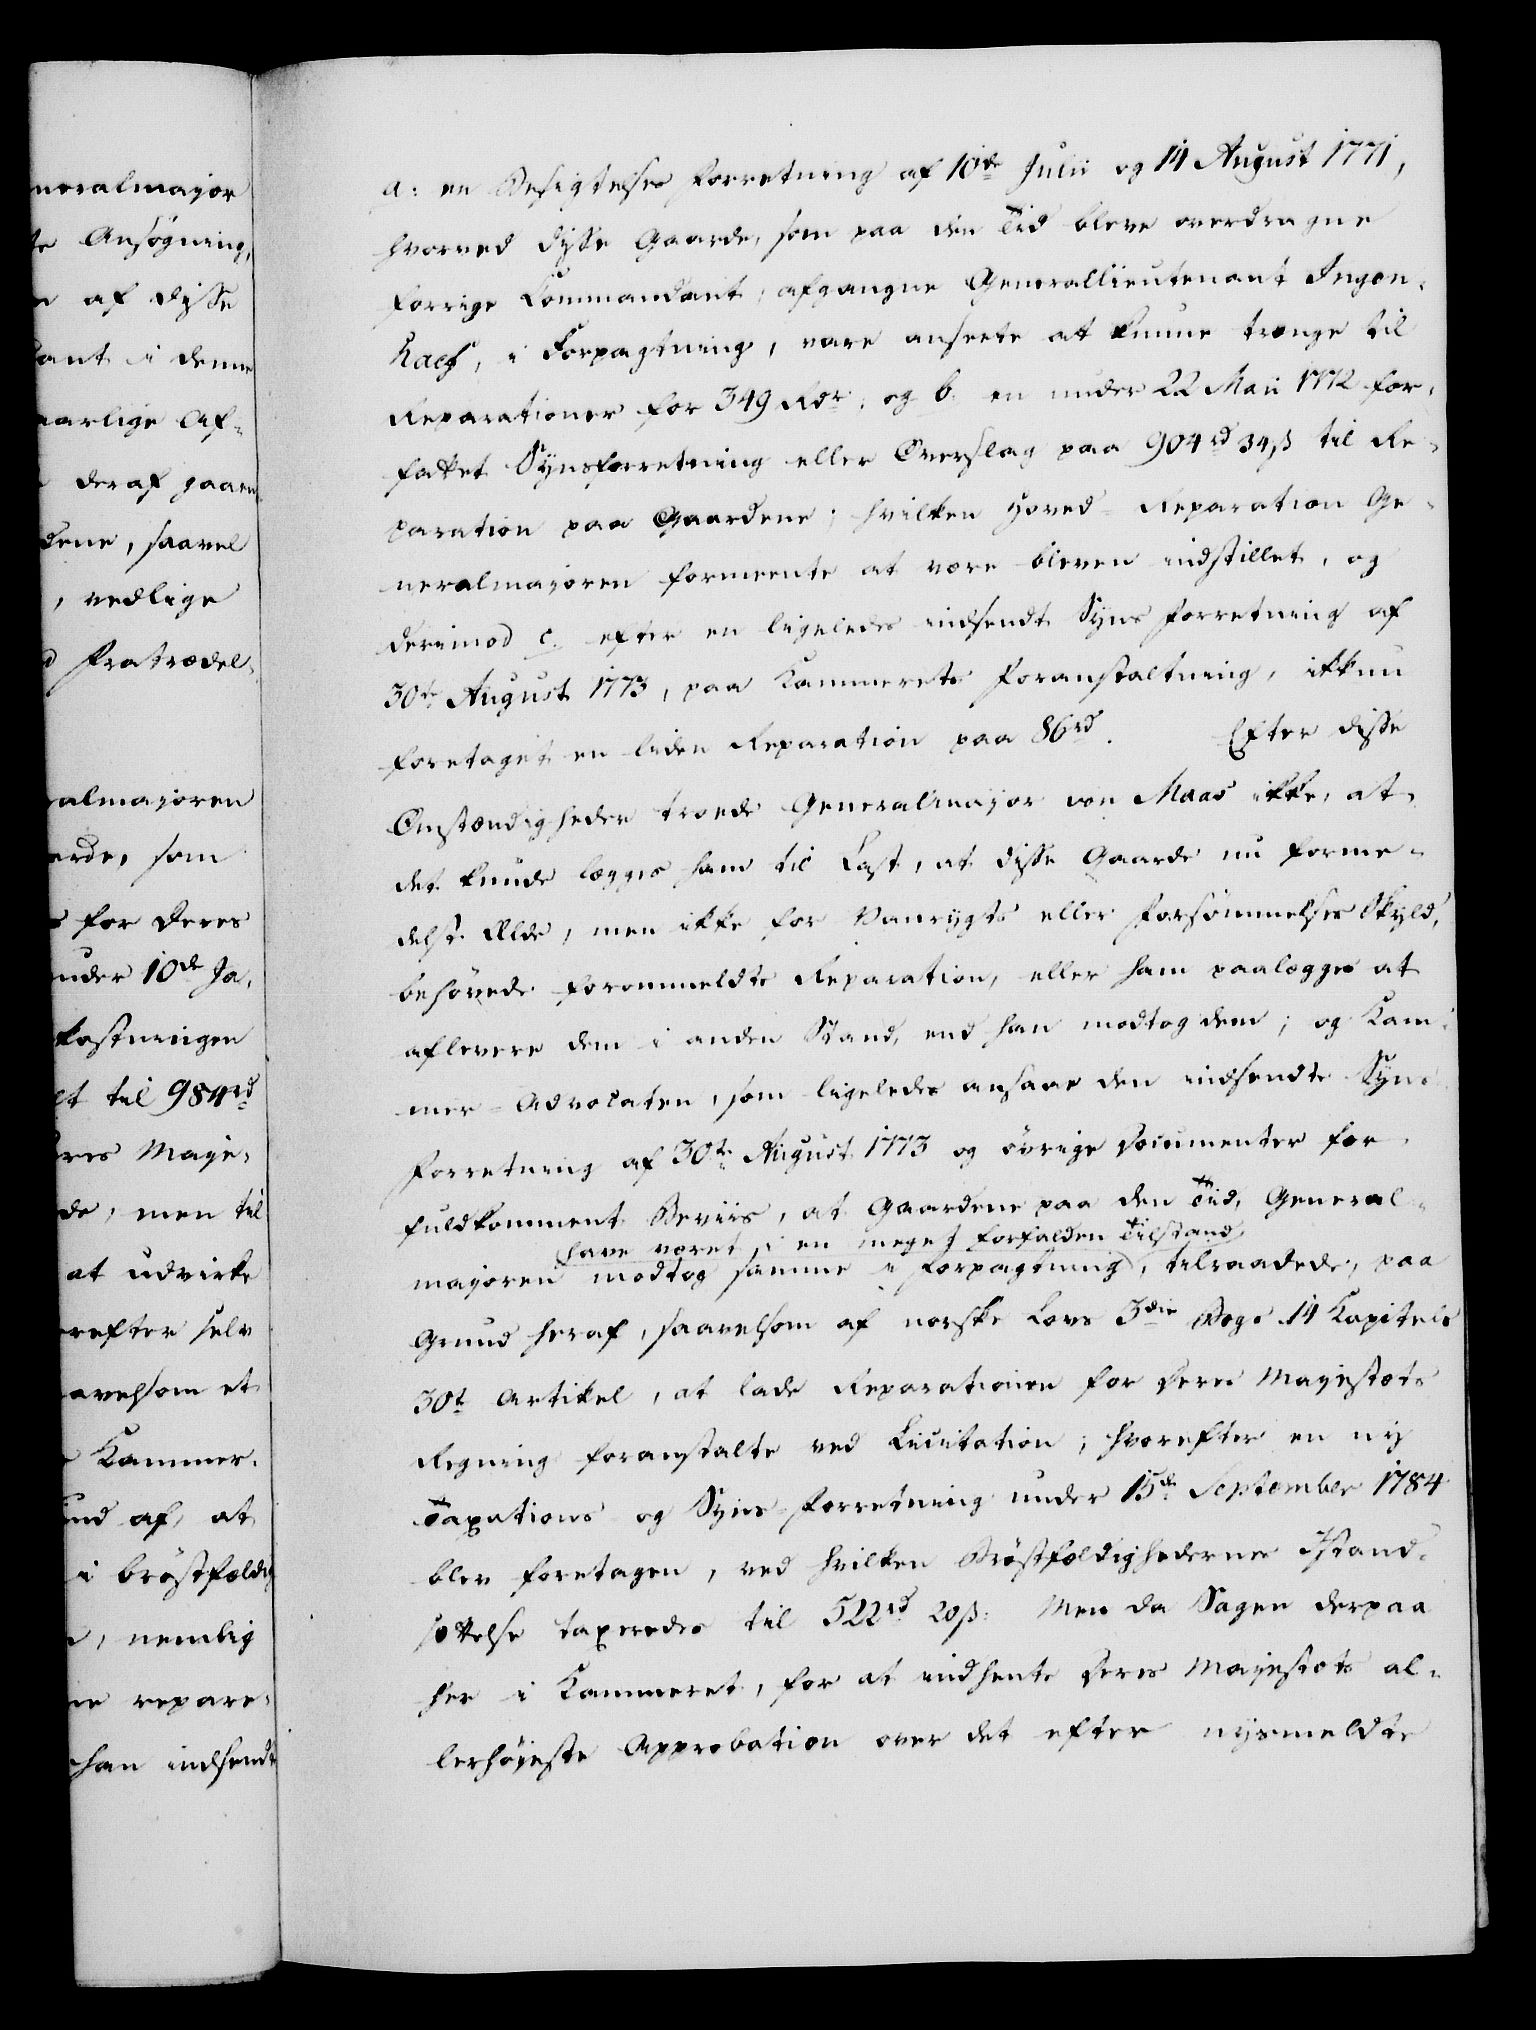 neralmajor
te Ansøgning,
af disse
dant i denne
aarlige Af-
deraf gaaen
dene, saavel
, vedlige
d Fratrædel-
ralmajoren
arde, som
for Deres
under 10de Ja-
kostningen
lt til 984rd
res Maje-
de, men til
at udvirke
refter selv
avelsom et
Kammer-
und af, at
i brøstfældig
, nemlig
ne repare-
han indsendt
a: en Besigtelses Forretning af 10de Julii og 14 August 1771,
hvorved disse Gaarde, som paa den Tid bleve overdragne
forrige Commandant, afgangne Generallieutenant Ingen-
haef, i Forpagtning, vare ansete at kunne trænge til
Reparationer for 349 Rdr, og b. en under 22 Maii 1772 for-
fattet Synsforretning eller Overslag paa 904rd 34ß til Re-
paration paa Gaardene; hvilken Hoved-Reparation Ge-
neralmajoren formeente at være bleven indstillet, og
derimod c. efter en ligeledes indsendt Syns Forretning af
30te August 1773, paa Kammerets Foranstaltning, ikkun
foretaget en liden Reparation paa 86rd. Efter disse
Omstændigheder troede Generalmajor von Maas ikke, at
det kunde lægges ham til Last, at disse Gaarde nu forme-
delst Ælde, men ikke for Vanrygts eller Forsømmelses Skyld,
behøvede forommeldte Reparation, eller ham paalægges at
aflevere dem i anden Stand, end han modtog dem; og Kam-
mer-Advocaten, som ligeledes ansaae den indsendte Syns
Forretning af 30te August 1773 og øvrige Documenter for
fuldkomment Beviis, at Gaardene paa den Tiid, General-
have været i en meget forfalden Tilstand
majoren modtog samme i Forpagtning, tilraadede, paa
Grund heraf, saavelsom af norske Lovs 3die Bogs 14 Kapitels
30te Artikel, at lade Reparationen for Deres Majestæts
Regning foranstalte ved Licitation; hvorefter en ny
Taxations og Syns-Forretning under 15de September 1784
blev foretagen, ved hvilken Brøstfældighedernes Istand-
sættelse taxeredes til 522rd 20ß. Men da Sagen derpaa
her i Kammeret, for at indhente Deres Majestæts al-
lerhøieste Approbation over det efter nysmeldte